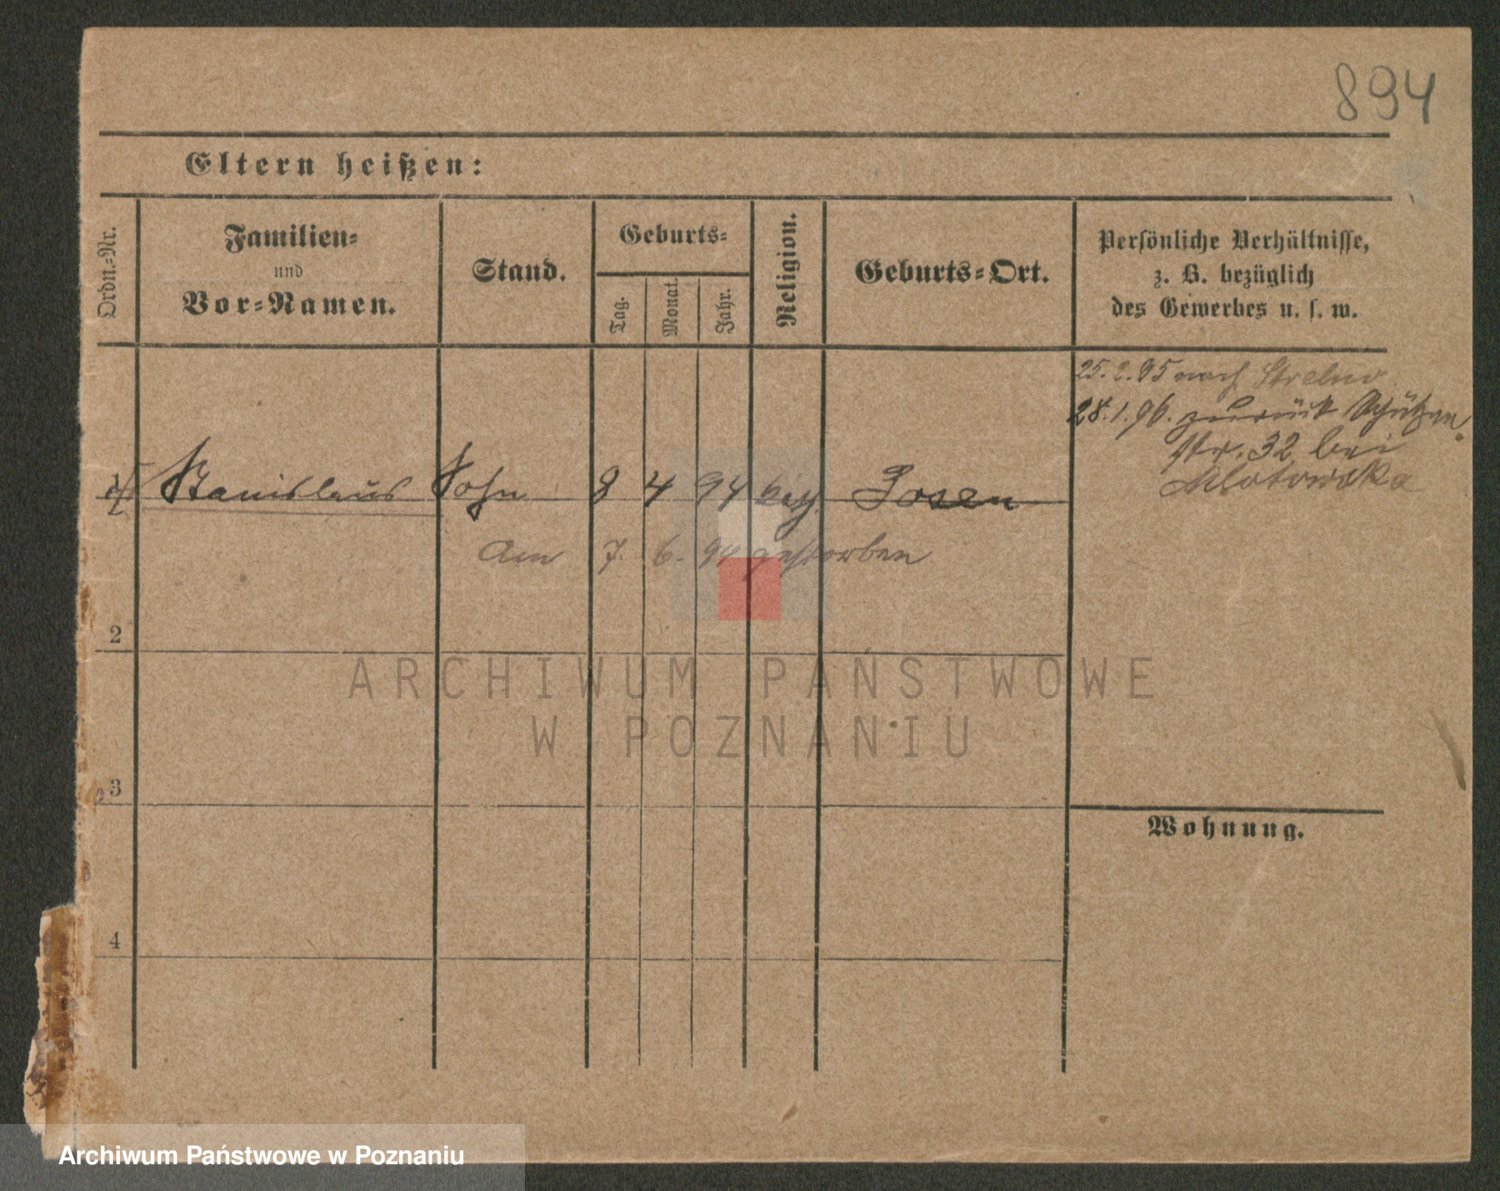 894
Eltern heißen:
Ordn.-Nr.
Familien-
und
Vor-Namen.
Stand.
Geburts-
Tag.
Monat.
Jahr.
Religion.
Geburts-Ort.
Persönliche Verhältnisse,
z. B. bezüglich
des Gewerbes u. s. w.
25. 2. 95 nach Strelno
28. 1. 96. zurück Schützen
str. 32 bei
Stanislaus Sohn 8 4 94 Posen
am 7. 6. 94 gestorben
2
3
4
Wohnung.
ARCHIWUM PAŃSTWOWE
W POZNANIU
Archiwum Państwowe w Poznaniu